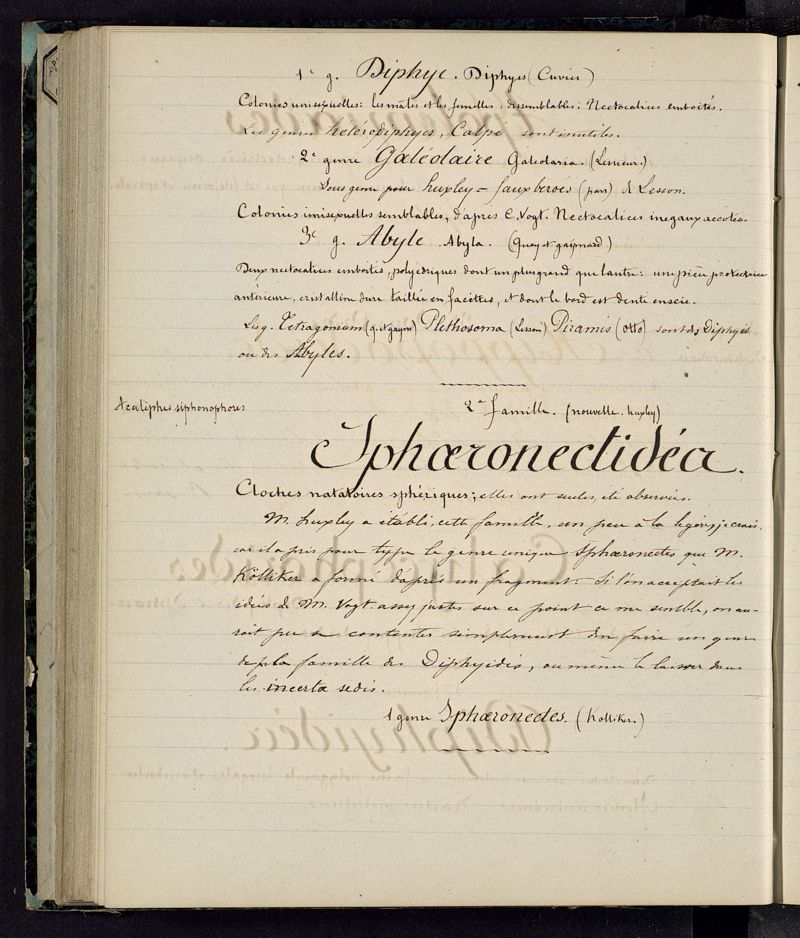 1er g. Diphye. Diphyes (Cuvier)
Colonies unisexuelles: les mâles et les femelles, dissemblables: Nectocalices emboités.
Les genres heterodiphyes, Calpé sont inutiles.
2e genre Galéolaire Galeolaria. (Lesueur.)
Sous genre pour huxley = faux beroés (pars) de Lesson.
Colonies unisexuelles semblables, d'apres C. Vogt. Nectocalices inegaux accolés.
3e g. Abyle Abyla. (Quoy et gaimard)
Deux nectocalices emboités, polyedriques dont un plus grand que l'autre: une piece protectrice
antérieure, cristalline dure taillée en facettes, et dont le bord est denté en scie.
Les g. Tetragonum (q. et gaym) Plethosoma (Lesson) Piramis (Otto) sont des Diphyes
ou des Abyles.
Acaliphes siphonophores
2e famille. (nouvelle. huxley)
Sphæronectidéa.
Cloches natatoires sphériques; elles ont seules, été observées.
M. huxley a établi, cette famille, un peu à la légère, je crois.
car il a pris pour type le genre unique Sphæronectes que M.
Kölliker a formé d'après un fragment. Si l'on acceptait les
idées de M. Vogt. assez justes sur ce point ce me semble, on au-
rait pu se contenter simplement d'en faire un genre
de la famille des Diphyidés, ou meme le laisser dans
les incerta sedis.
1 genre Sphæronectes. (Kölliker.)